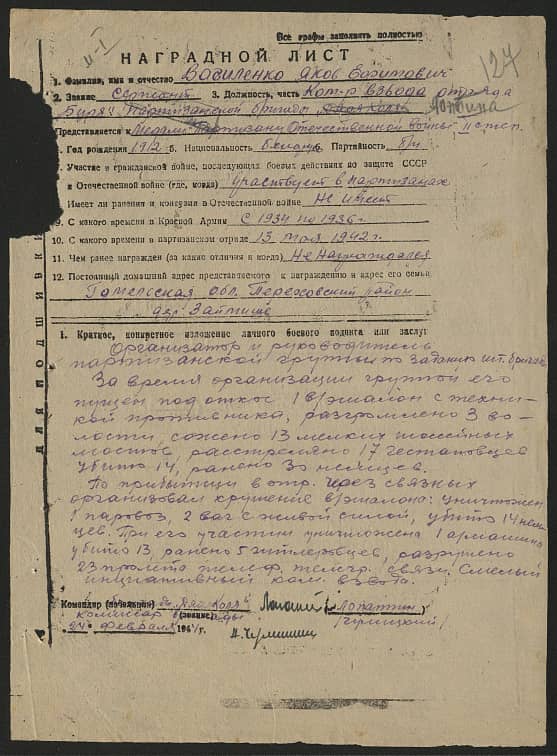 Все графы заполнять полностью
II-I
127
НАГРАДНОЙ ЛИСТ
1. Фамилия, имя и отчество Василенко Яков Евтихович
2. Звание Сержант 3. Должность, часть Ком-р взвода отряда
Партизанской бригады "Дяди Коли" Лопатина
Представляется к Медали Партизану Отечественной войны II степ.
Год рождения 1912 Национальность белорус 6. Партийность б/п
Участие в гражданской войне, последующих боевых действиях по защите СССР
и Отечественной войне (где, когда) участвует в партизанах
Имеет ли ранения и контузии в Отечественной войне Не имеет
9. С какого времени в Красной Армии С 1934 по 1936 г.
10. С какого времени в партизанском отряде 13 мая 1942 г.
11. Чем ранее награжден (за какие отличия и когда) Не награждался
12. Постоянный домашний адрес представляемого к награждению и адрес его семьи
Гомельская обл. район
дер. Займище
ДЛЯ ПОДШИВКИ
I. Краткое, конкретное изложение личного боевого подвига или заслуг
Организатор и руководитель
партизанской группы по заданию шт. бригады
За время организации группой его
пущен под откос 1 в/эшалон с техни-
кой противника, разгромлено 3 во-
лости, сожено 13 мелких шоссейных
мостов, расстреляно 17 гестаповцев
убито 14, ранено 30 немцев.
По прибытии в отр. через связных
организовал крушение в/эшалона: уничтожен
1 паровоз, 2 ваг. с живой силой, убито 14 нем-
цев. При его участии уничтожена 1 автомашина
убито 13, ранено 5 гитлеровцев, разрушено
23 пролета телеф. телегр. связи. Смелый
инициативный ком. взвода.
Командир бр-ды "Дяди Коли" (Лопатин)
Комиссар бригады
(звание)
24 февраля 1944 г.